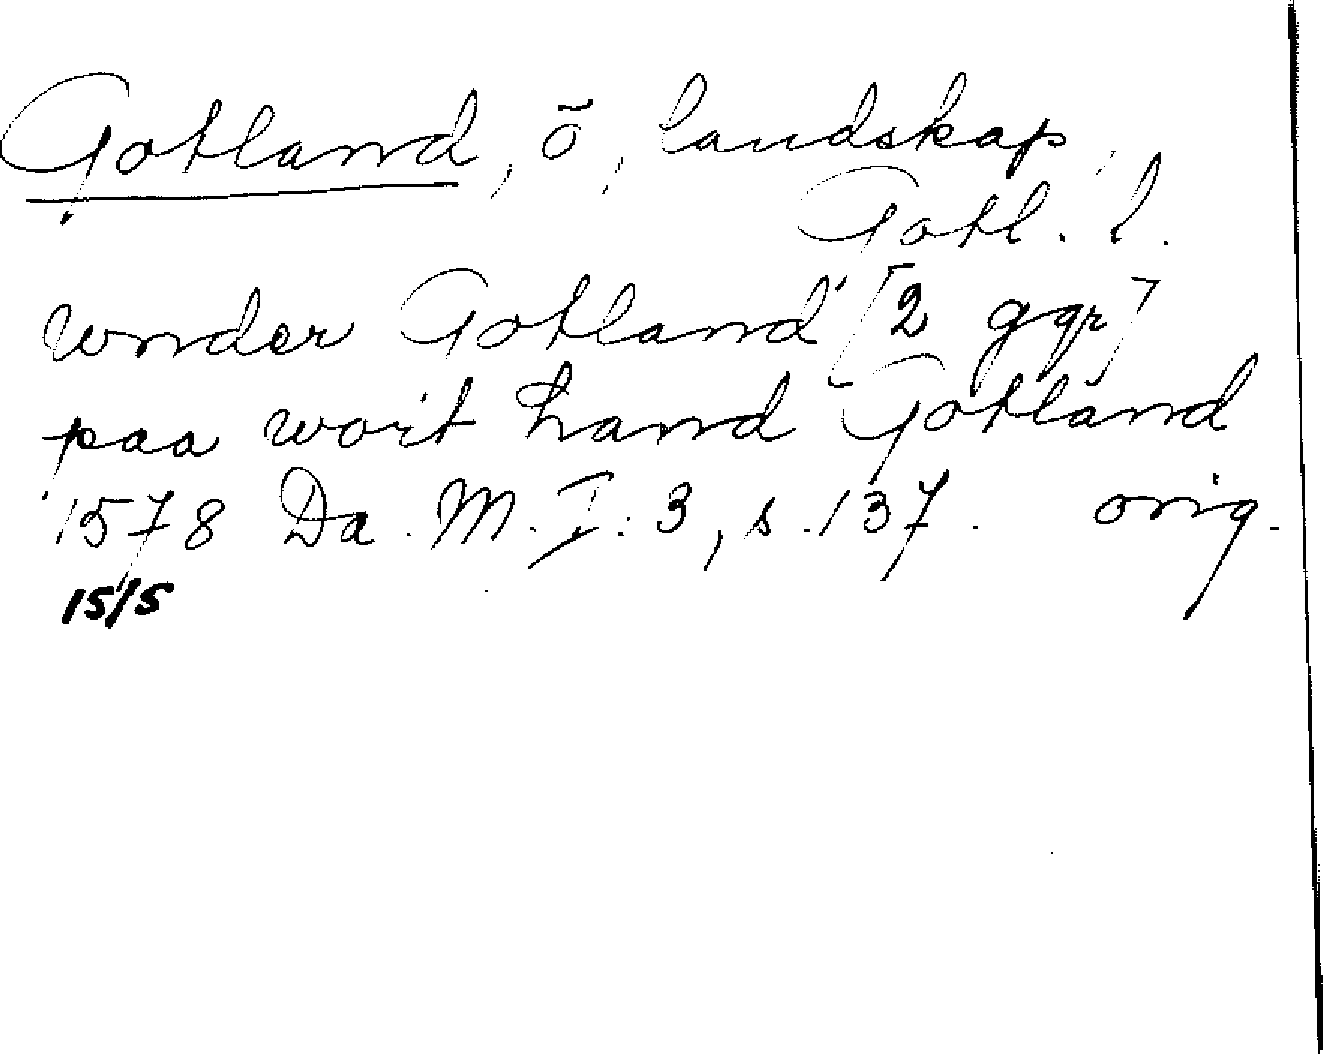 Gotland, ö, landskap,
Gotl. l.
wnder Gotland [2 ggr]
paa wort land Gotland
1578 Da. M. I: 3, s. 137. orig.
15/5